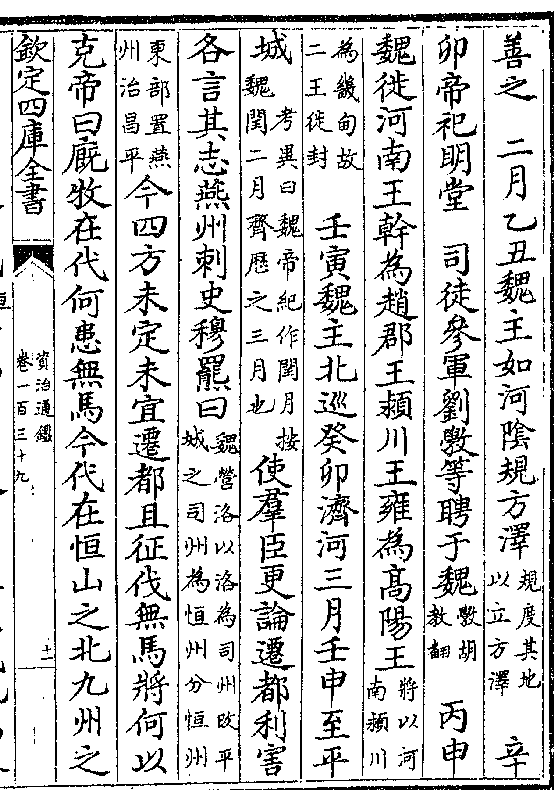 善之　二月乙丑魏主如河陰規方澤規度其地以立方澤　辛
卯帝祀明堂　司徒參軍劉斆等聘于魏斆胡教翻　丙申
魏徙河南王幹為趙郡王潁川王雍為高陽王將以河南潁川
為畿甸故二王徙封　壬寅魏主北巡癸卯濟河三月壬申至平
城考異曰魏帝紀作閏月按魏閏二月齊歷之三月也使羣臣更論遷都利害
各言其志燕州刺史穆羆曰魏營洛以洛為司州改平城之司州為恒州分恒州
東部置燕州治昌平今四方未定未宜遷都且征伐無馬將何以
克帝曰廐牧在代何患無馬今代在恒山之北九州之
欽定四庫全書
資治通鑑
卷一百三十九
十一